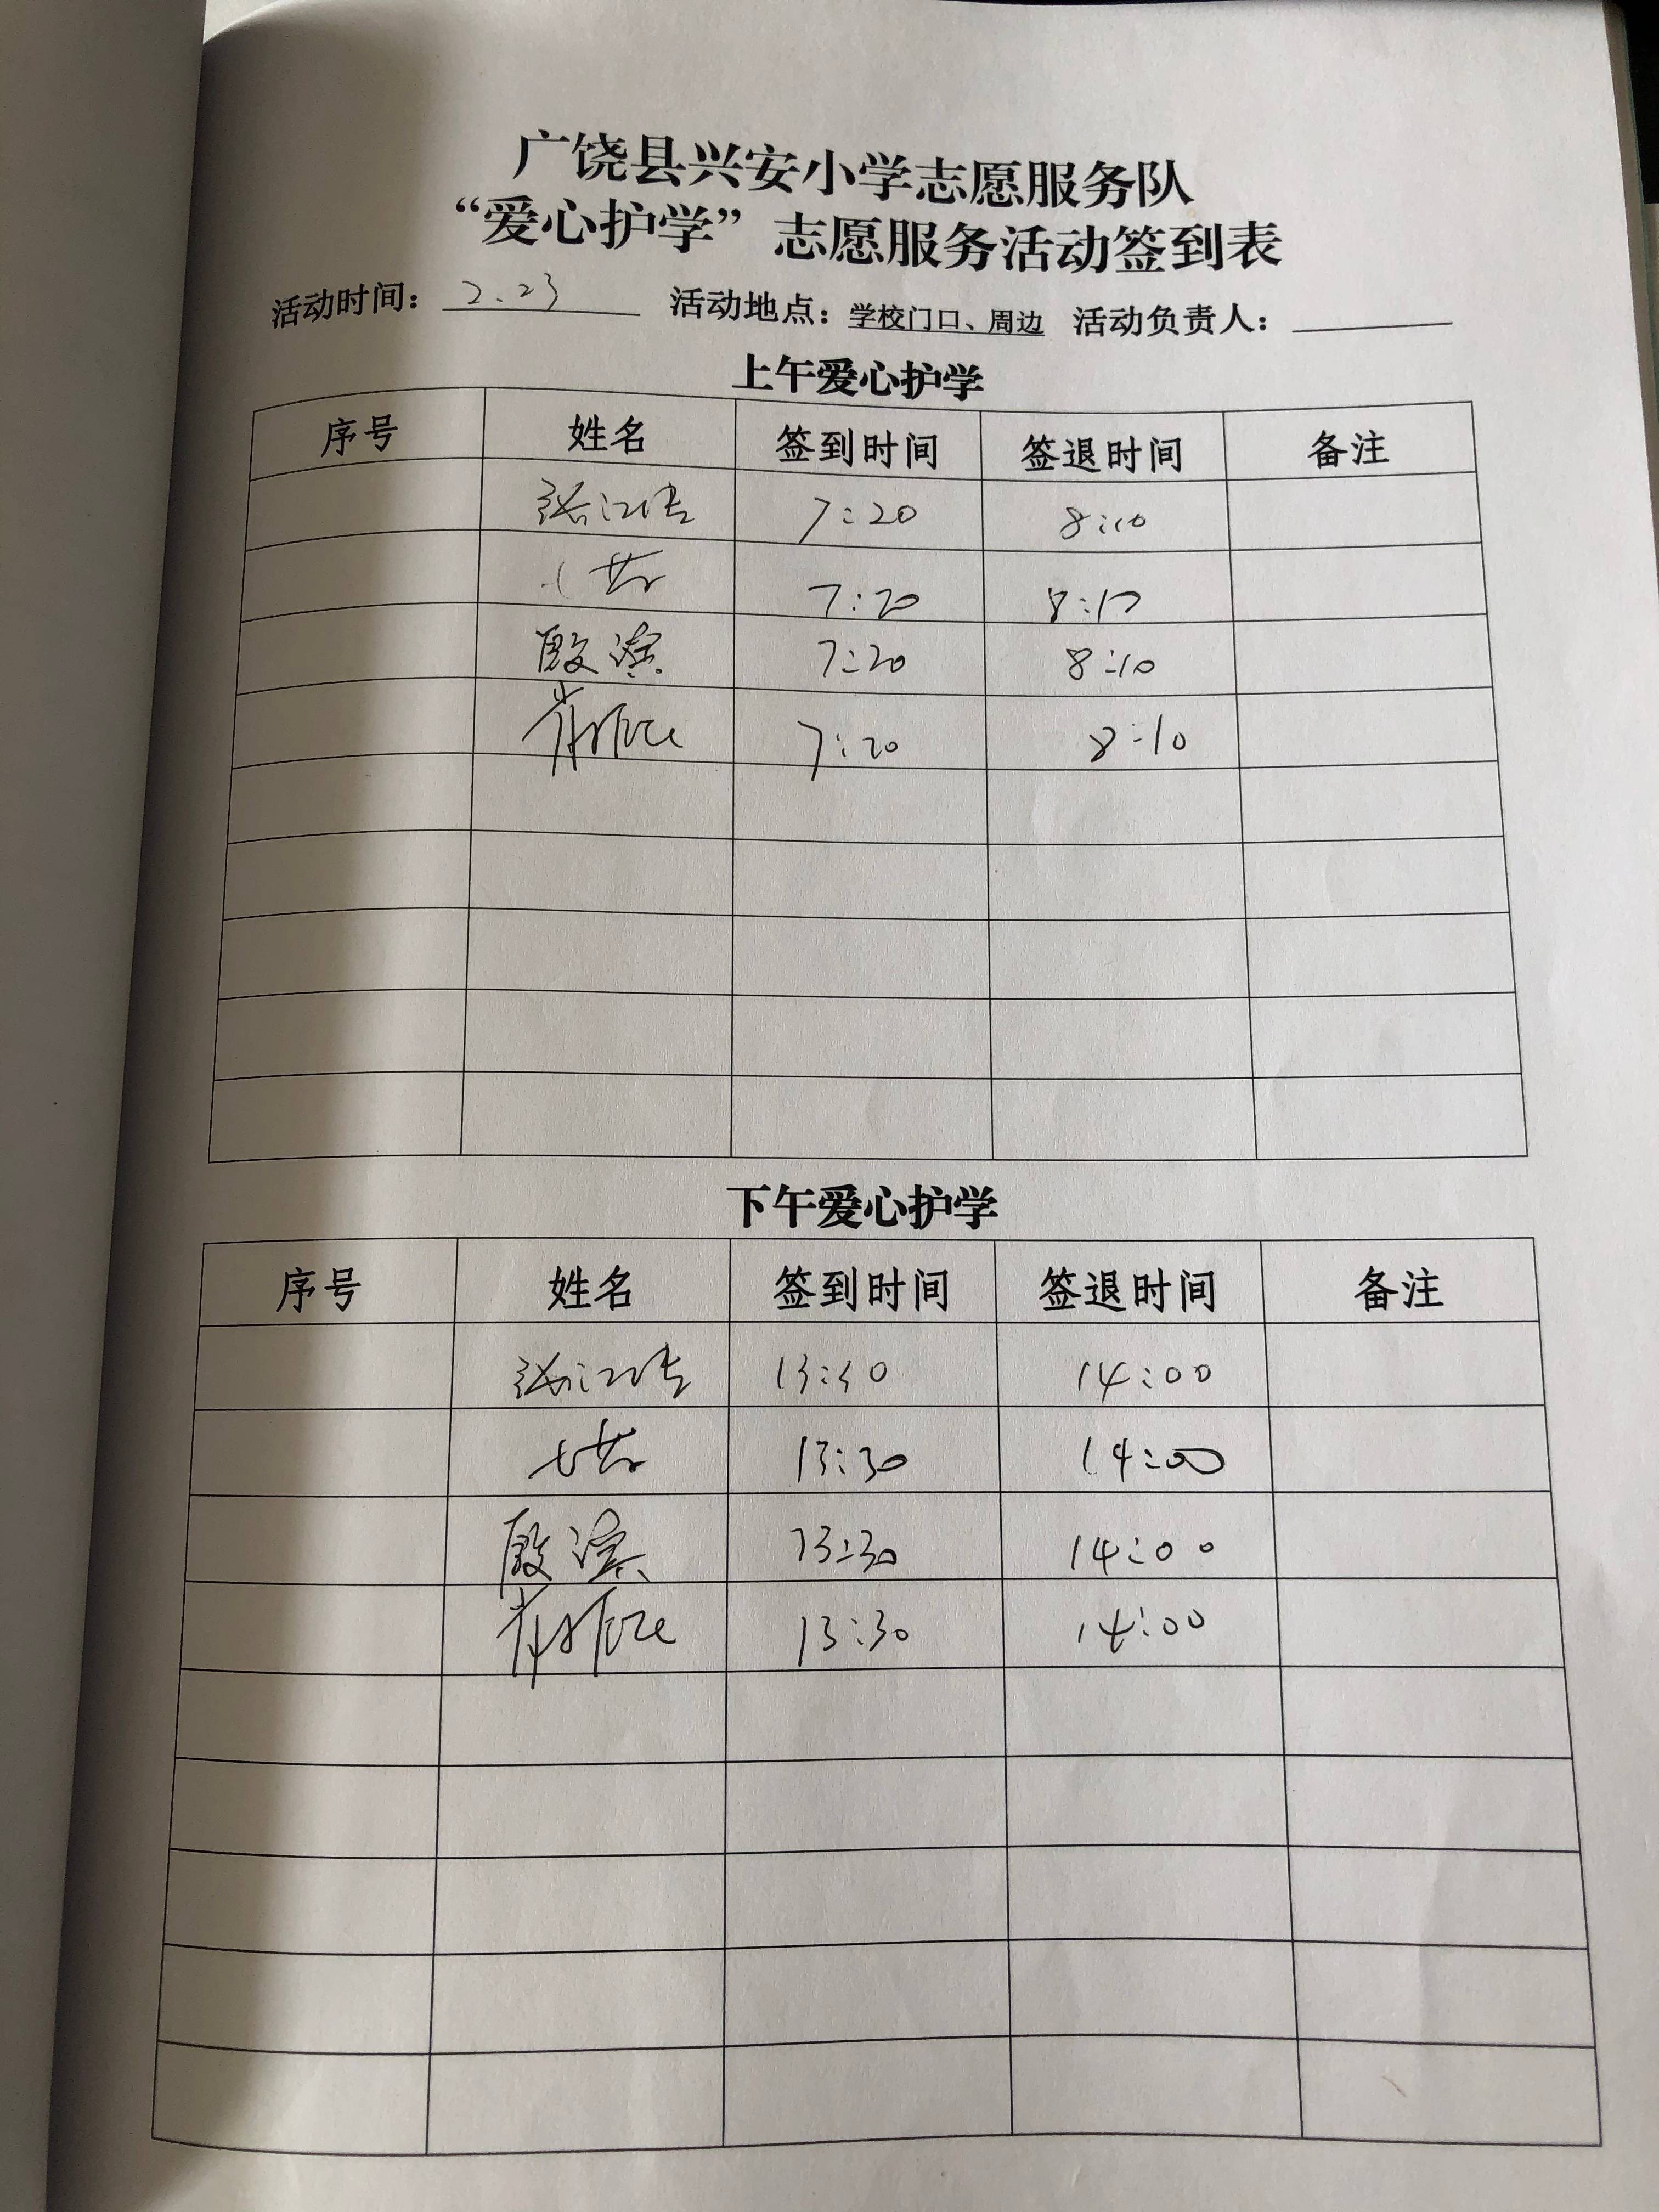 广饶县兴安小学志愿服务队
“爱心护学”志愿服务活动签到表
活动时间： 2.23 活动地点：学校门口、周边 活动负责人：
上午爱心护学
序号 姓名 签到时间 签退时间 备注
7:20 8:10
7:20 8:10
殷 7:20 8:10
7:20 8:10
下午爱心护学
序号 姓名 签到时间 签退时间 备注
13:30 14:00
13:30 14:00
殷 13:30 14:00
13:30 14:00